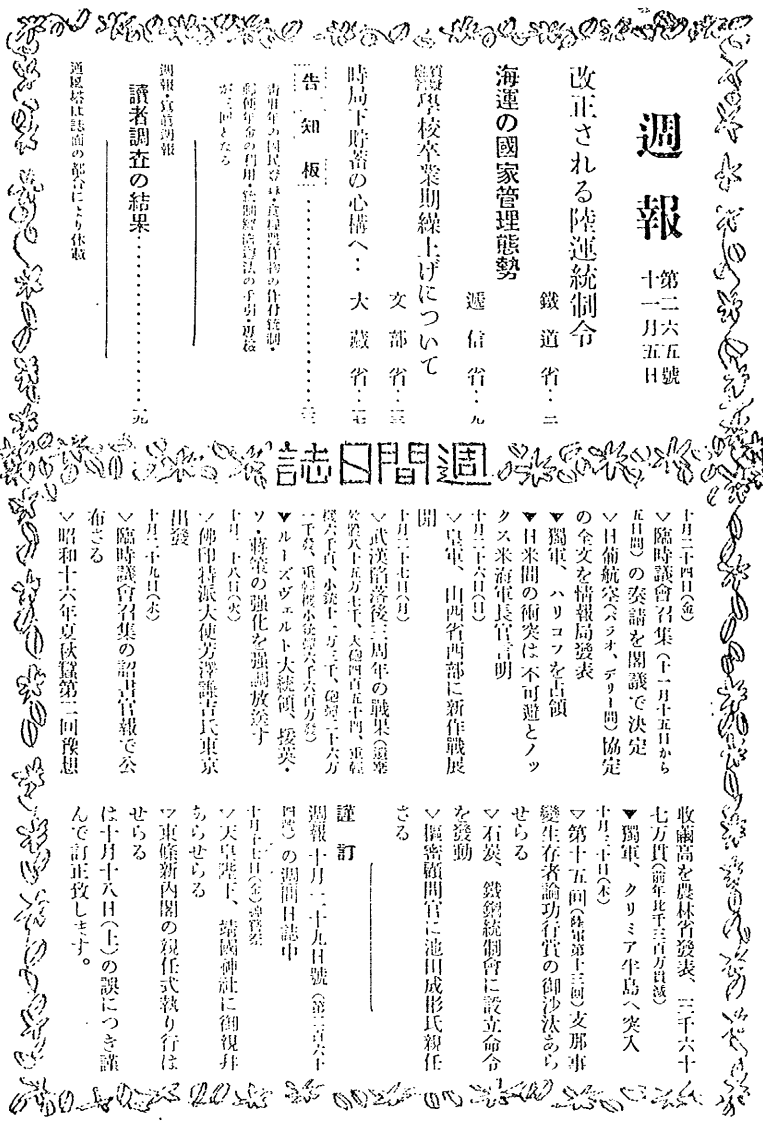 週報
第二六五號
十一月五日
改正される陸運統制令
鐵道省‥二
海運の國家管理態勢
遞信省‥九
學校卒業期繰上げについて
文部省‥三
時局下貯蓄の心構へ‥大藏省‥七
告知板
青壯年の國民登録・食糧農作物の作付統制・
郵便年金の利用・統制經濟違法の手引・專檢
が三回となる
週報・寫眞週報
讀者調査の結果
通風塔は誌面の都合により休載
週間日誌
十月二十四日(金)
▽臨時議會召集(十一月十五日から
五日間)の奏請を閣議で決定
▽日葡航空(パラオ、デリー間)協定
の全文を情報局發表
▼獨軍、ハリコフを占領
▼日米間の衝突は不可避とノッ
クス米海軍長官言明
十月二十六日(日)
▽皇軍、山西省西部に新作戰展
開
十月二十七日(月)
▽武漢陷落後三周年の戰果(遺棄
死體八十五萬七千、大砲四百五十門、重輕
機六千百、小銃十一万三千、砲彈二十六万
一千發、重輕機小銃彈六千六百万發)
▼ルーズヴェルト大統領、援英・
ソ・蔣策の强化を强調放送す
十月二十八日(火)
▽佛印特派大使芳澤謙吉氏東京
出發
十月二十九日(水)
▽臨時議會召集の詔書官報で公
布さる
▽昭和十六年夏秋蠶第二回豫想
收繭高を農林省發表、三千六十
七万貫(前年比千三百万貫減)
▼獨軍、クリミア半島へ突入
十月三十日(木)
▽第十五回(陸軍第十三回)支那事
變生存者論功行賞の御沙汰あら
せらる
▽石炭、鐵鋼統制會に設立命令
を發動
▽樞密顧問官に池田成彬氏親任
さる
謹訂
週報十月二十九日號(第二百六十
四號)の週間日誌中
十月十七日(金)神嘗祭
▽天皇陛下、靖國神社に御親拜
あらせらる
▽東條新內閣の親任式執り行は
せらる
は十月十八日(土)の誤につき謹
んで訂正致します。